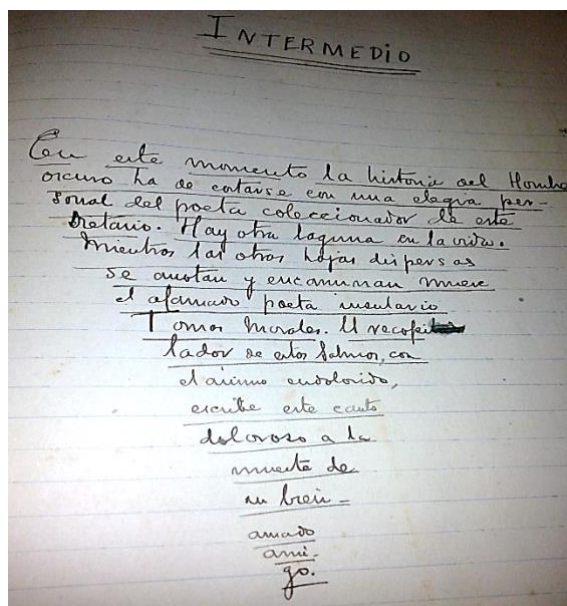 INTERMEDIO
En este momento la historia del Hombre
oscuro ha de cortarse con una elegia per-
sonal del poeta coleccionador de este
Bretario. Hay otra laguna en la vida.
Mientras las otras hojas dispersas
se anotan y encaminan muere
el afamado poeta insulario
Tomas Morales. El recopi
lador de estos Salmos, con
el animo endolorido,
escribe este canto
doloroso a la
muerte de
su bien-
amado
ami-
go.